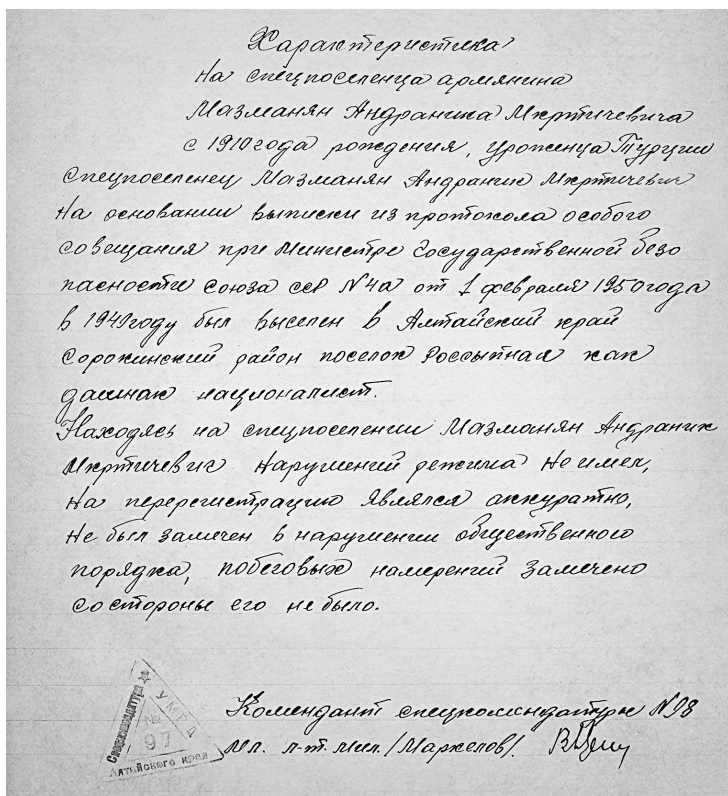 Характеристика
На спецпоселенца армянина
Мазманян Андраника Мкртичевича
с 1910 года рождения, уроженца Турции
Спецпоселенец Мазманян Андраник Мкртичевич
На основании выписки из протокола особого
совещания при Министре Государственной безо
пасности союза сср N4а от 1 февраля 1950 года
в 1949 году был выселен в Алтайский край
Сорокинский район поселок Россыпная как
дашнак националист.
Находясь на спецпоселении Мазманян Андраник
Мкртичевич Нарушений режима Не имел,
На перерегистрацию Являлся аккуратно,
Не был замечен в нарушении общественного
порядка, побеговых намерений замечено
со стороны его не было.
Комендант спецкомендатуры N98
Мл. л-т. мил. /Маркелов/.
Спецкомендатура
УМГБ
№
97
Алтайского края